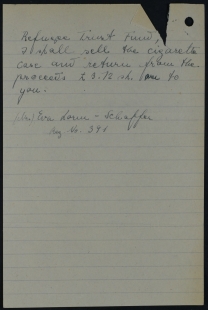 Refugee Trust Fund,
I shall sell the cigarette
case and return from the
proceeds £ 3-12 sh. to
you.
Eva Dorn - Schaffer
Reg. No. 394